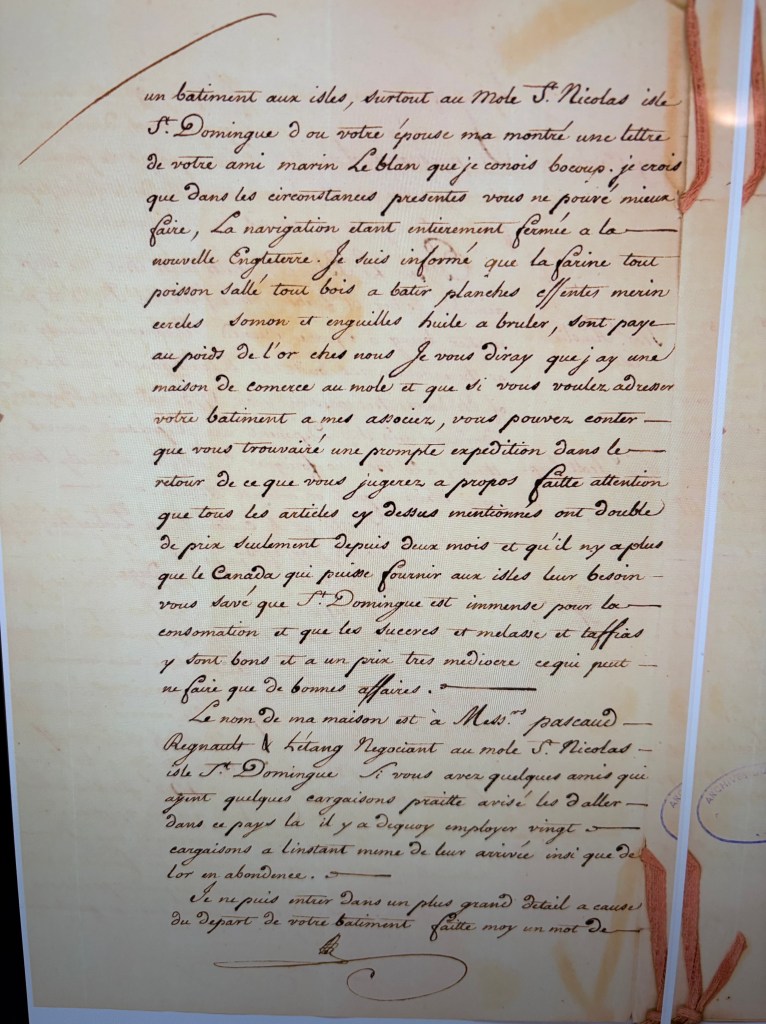 un batiment aux isles, surtout au Mole St. Nicolas isle
St. Domingue d ou votre épouse ma montré une lettre
de votre ami marin Le blan que je conois bocoup. je crois
que dans les circonstances presentes vous ne pouvé mieux
faire, La navigation etant entierement fermée a la
nouvelle Engleterre. Je suis informé que la farine tout
poisson sallé tout bois a batir planches essentes merin
cercles somon et enguilles huile a bruler, sont paye
au poids de l'or ches nous Je vous diray que j ay une
maison de comerce au mole et que si vous voulez adresser
votre batiment a mes associez, vous pouvez conter
que vous trouvairé une prompte expedition dans le
retour de ce que vous jugerez a propos faitte attention
que tous les articles cy dessus mentionnés ont double
de prix seulement depuis deux mois et qu'il ny a plus
que le Canada qui puisse fournir aux isles leur besoin
vous savé que St. Domingue est immense pour la
consomation et que les succres et melasse et taffias
y sont bons et a un prix tres mediocre ce qui peut
ne faire que de bonnes affaires.
Le nom de ma maison est à Mess.rs pascaud
Regnault & Létang Negociant au mole St. Nicolas
isle St. Domingue Si vous avez quelques amis qui
ayent quelques cargaisons praitte avisé les d'aller
dans ce pays la il y a dequoy employer vingt
cargaisons a linstant meme de leur arrivée insi que de
lor en abondence.
Je ne puis entrer dans un plus grand détail a cause
du depart de votre batiment faitte moy un mot de